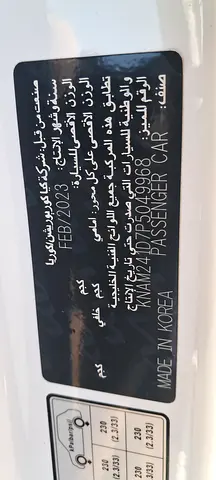 صنعت من قبل: شركة كيا كوربوريشن/كوريا
سنة و شهر الإنتاج: FEB/2023
الوزن الأقصى للسيارة: كجم
الوزن الأقصى على كل محور: أمامي كجم خلفي كجم
تطابق هذه المركبة جميع اللوائح الفنية الخليجية
والوطنية للسيارات التي صدرت حتى تاريخ الإنتاج
الرقم المميز: KNAM241D7P5049868
صنف: PASSENGER CAR
MADE IN KOREA
kPa(bar/psi)
230
(2.3/33)
230
(2.3/33)
230
(2.3/33)
230
(2.3/33)